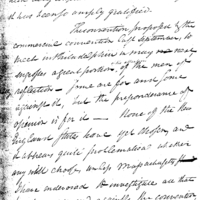 it has been so amply gratified.
The convention proposed by the
commercial convention last September, to
meet in Philadelphia in may next
engrosses a great portion of the men of
reflection — some are for and some
against it, but the preponderance of
opinion is for it — None of the New
England states have yet chosen, and
it appears quite problematical whether
any will chose, unless Massachusetts —
I have endeavored to investigate all that